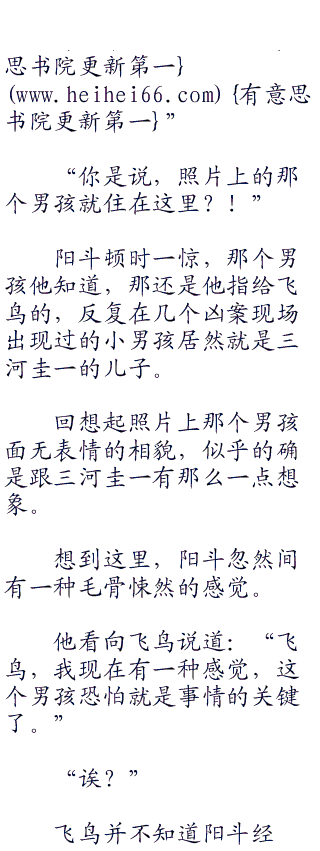 思书院更新第一}
(www.heihei66.com) {有意思
书院更新第一}”
“你是说，照片上的那
个男孩就住在这里？！”
阳斗顿时一惊，那个男
孩他知道，那还是他指给飞
鸟的，反复在几个凶案现场
出现过的小男孩居然就是三
河圭一的儿子。
回想起照片上那个男孩
面无表情的相貌，似乎的确
是跟三河圭一有那么一点想
象。
想到这里，阳斗忽然间
有一种毛骨悚然的感觉。
他看向飞鸟说道：“飞
鸟，我现在有一种感觉，这
个男孩恐怕就是事情的关键
了。”
“诶？”
飞鸟并不知道阳斗经